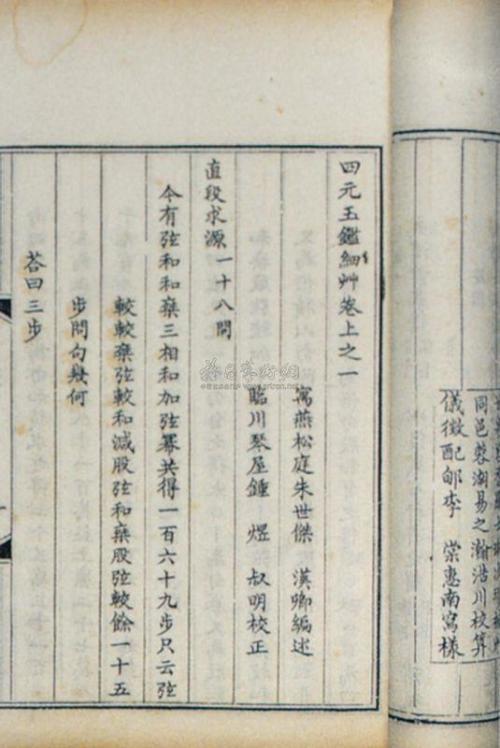 同邑蓉湖易之瀚浩川校算
儀徵配邮李　崇惠南寫樣
四元玉鑑細艸卷上之一
寓燕松庭朱世傑　漢卿編述
臨川琴屋鍾　煜　叔明校正
直段求源一十八問
今有弦和和乘三相和加弦冪共得一百六十九步只云弦
較較乘弦較和減股弦和乘股弦較餘一十五
步問句幾何
荅曰三步